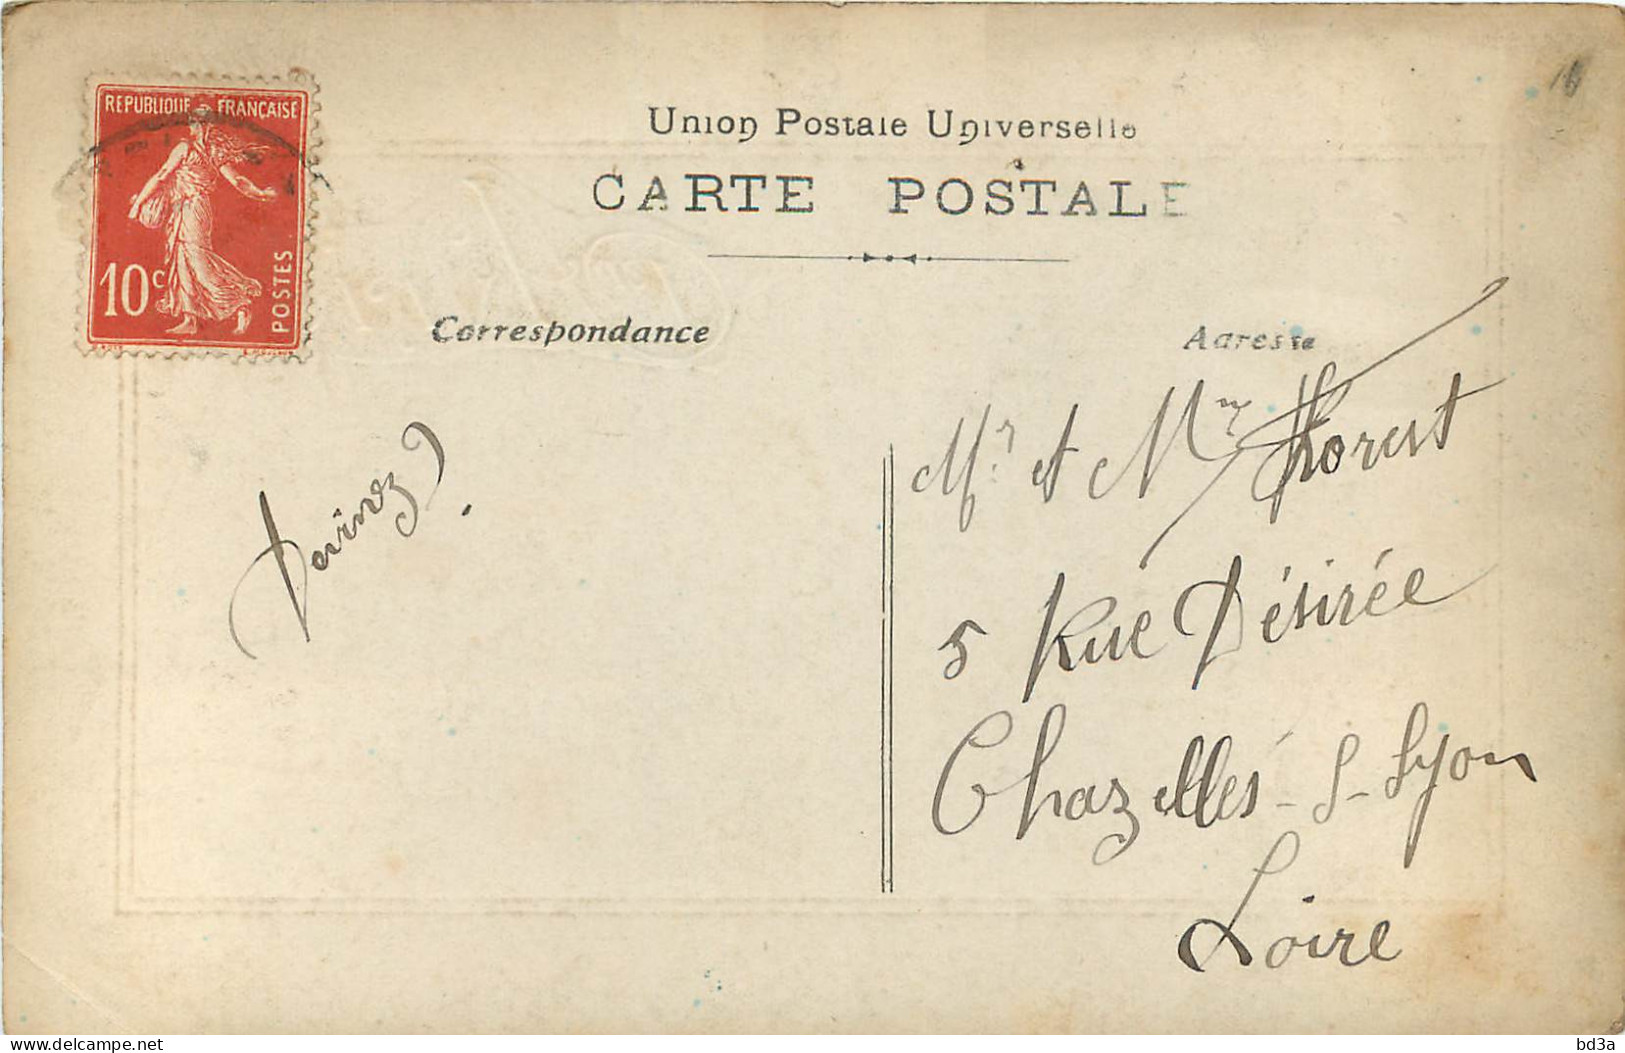 REPUBLIQUE FRANÇAISE
10c
POSTES
Union Postale Universelle
CARTE POSTALE
Correspondance
Adresse
Devinez?
Mr et Mme Thorest
5 Rue Désirée
Chazelles-s-Lyon
Loire
bd3a